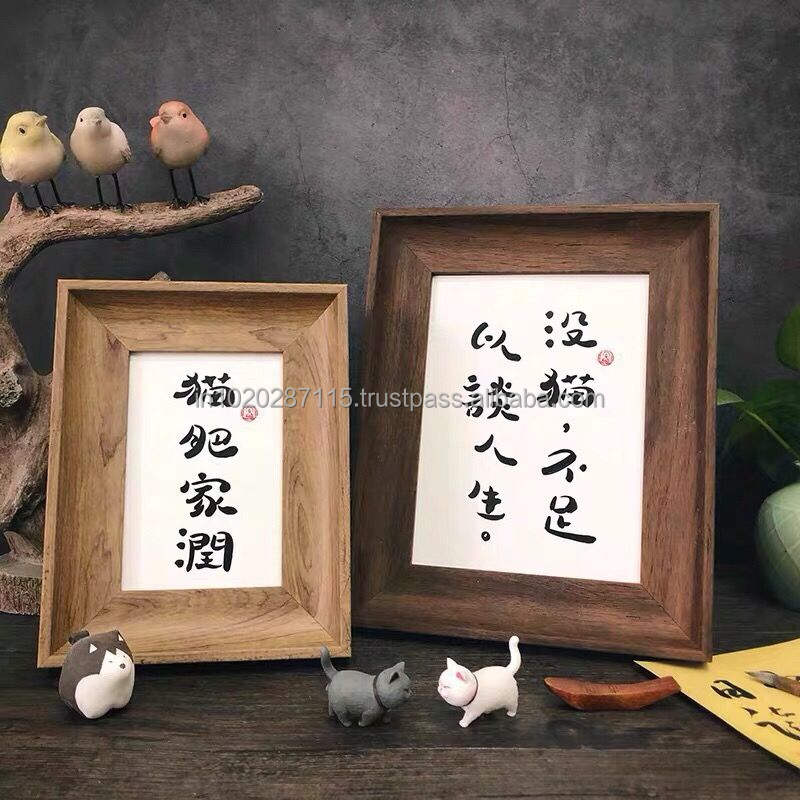 猫肥家潤
没猫，不足
以談人生。
in1020287115.trustpass.alibaba.com